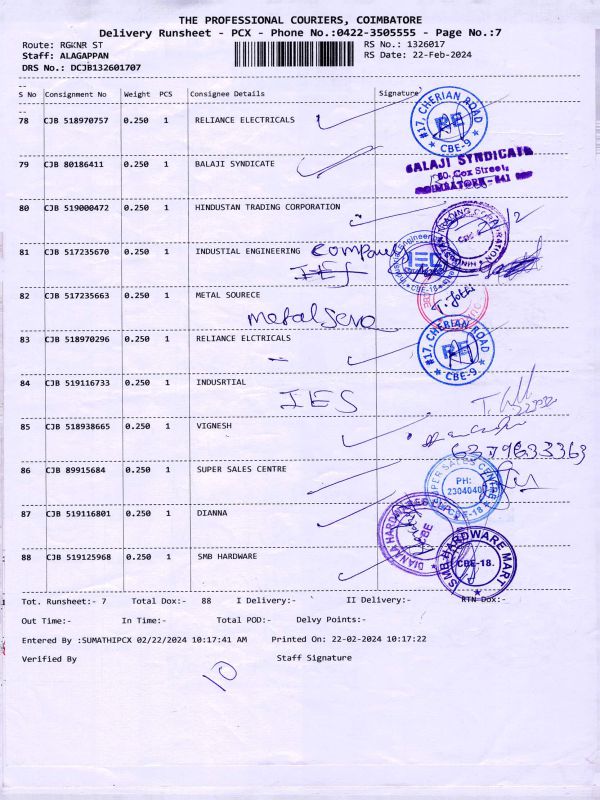 THE PROFESSIONAL COURIERS, COIMBATORE
Delivery Runsheet - PCX - Phone No.:0422-3505555 - Page No.:7
Route: RGKNR ST RS No.: 1326017
Staff: ALAGAPPAN RS Date: 22-Feb-2024
DRS No.: DCJB132601707
S No Consignment No Weight PCS Consignee Details Signature
78 CJB 518970757 0.250 1 RELIANCE ELECTRICALS
#17, CHERIAN ROAD RE CBE-9
79 CJB 80186411 0.250 1 BALAJI SYNDICATE
BALAJI SYNDICATE
80, Cox Street,
COIMBATORE - 641
80 CJB 519000472 0.250 1 HINDUSTAN TRADING CORPORATION
81 CJB 517235670 0.250 1 INDUSTIAL ENGINEERING Company
IEC CBE-18
82 CJB 517235663 0.250 1 METAL SOURECE
Metal Sena
83 CJB 518970296 0.250 1 RELIANCE ELCTRICALS
#17, CHERIAN ROAD RE CBE-9
84 CJB 519116733 0.250 1 INDUSRTIAL
IES
85 CJB 518938665 0.250 1 VIGNESH
6379633363
86 CJB 89915684 0.250 1 SUPER SALES CENTRE
SUPER SALES CENTRE PH: 2304040 CBE-18
87 CJB 519116801 0.250 1 DIANNA
88 CJB 519125968 0.250 1 SMB HARDWARE
SMB HARDWARE MART CBE-18.
Tot. Runsheet:- 7 Total Dox:- 88 I Delivery:- II Delivery:- RTN Dox:-
Out Time:- In Time:- Total POD:- Delvy Points:-
Entered By :SUMATHIPCX 02/22/2024 10:17:41 AM Printed On: 22-02-2024 10:17:22
Verified By Staff Signature
10